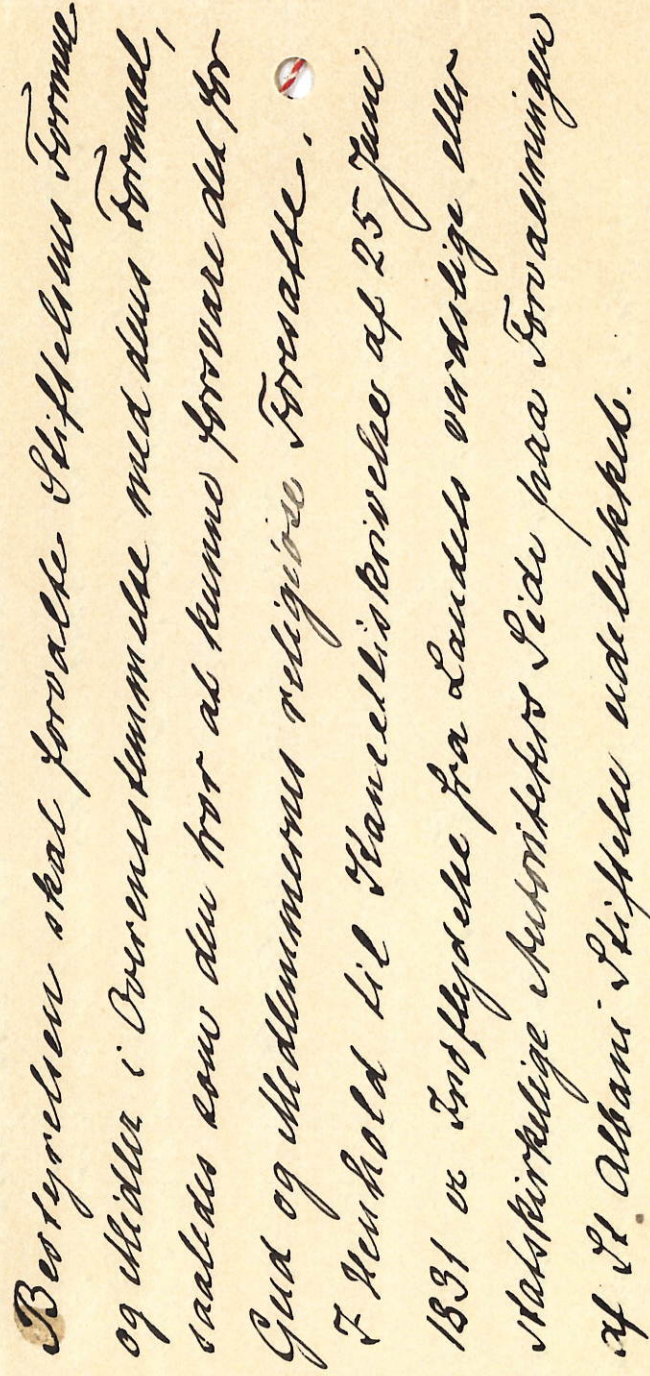 Bestyrelsen skal forvalte Stiftelsens Formue
og Midler i Overensstemmelse med dens Formaal,
saaledes som den tror at kunne forsvare det for
Gud og Medlemmernes religiøse Foresatte.
I Henhold til Kancelliskrivelse af 25 Juni
1831 er Indflydelse fra Landets verdslige eller
statskirkelige Autoriteters Side paa Forvaltningen
af St Albani Stiftelse udelukket.